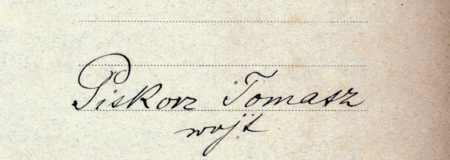 Piskorz Tomasz
wójt